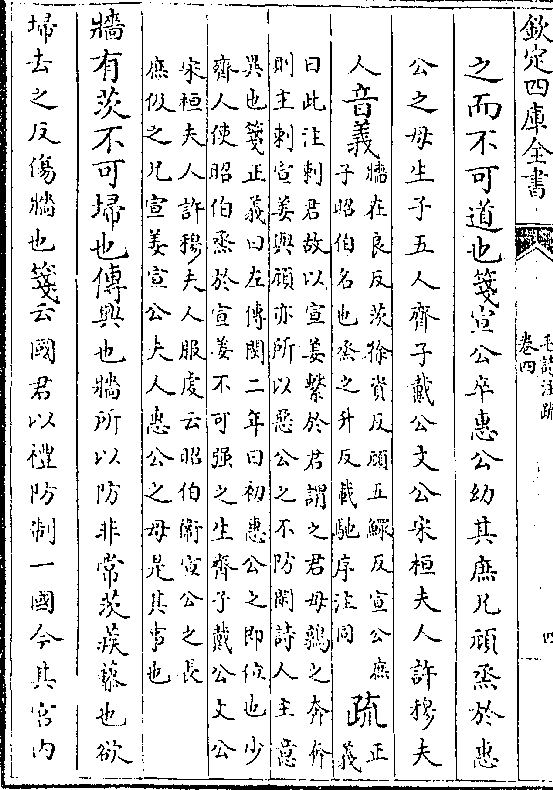 欽定四庫全書
毛詩注疏
卷四
四
之而不可道也箋宣公卒惠公幼其庶兄頑烝於惠
公之母生子五人齊子戴公文公宋桓夫人許穆夫
人音義牆在良反茨徐資反頑五鰥反宣公庶
子昭伯名也烝之升反載馳序注同
疏正
義
曰此注刺君故以宣姜繫於君謂之君母鶉之奔奔
則主刺宣姜與頑亦所以惡公之不防閑詩人主意
異也箋正義曰左傳閔二年曰初惠公之即位也少
齊人使昭伯烝於宣姜不可强之生齊子戴公文公
宋桓夫人許穆夫人服虔云昭伯衛宣公之長
庶伋之兄宣姜宣公夫人惠公之母是其事也
牆有茨不可埽也傳興也牆所以防非常茨蒺藜也欲
埽去之反傷牆也箋云國君以禮防制一國今其宮内